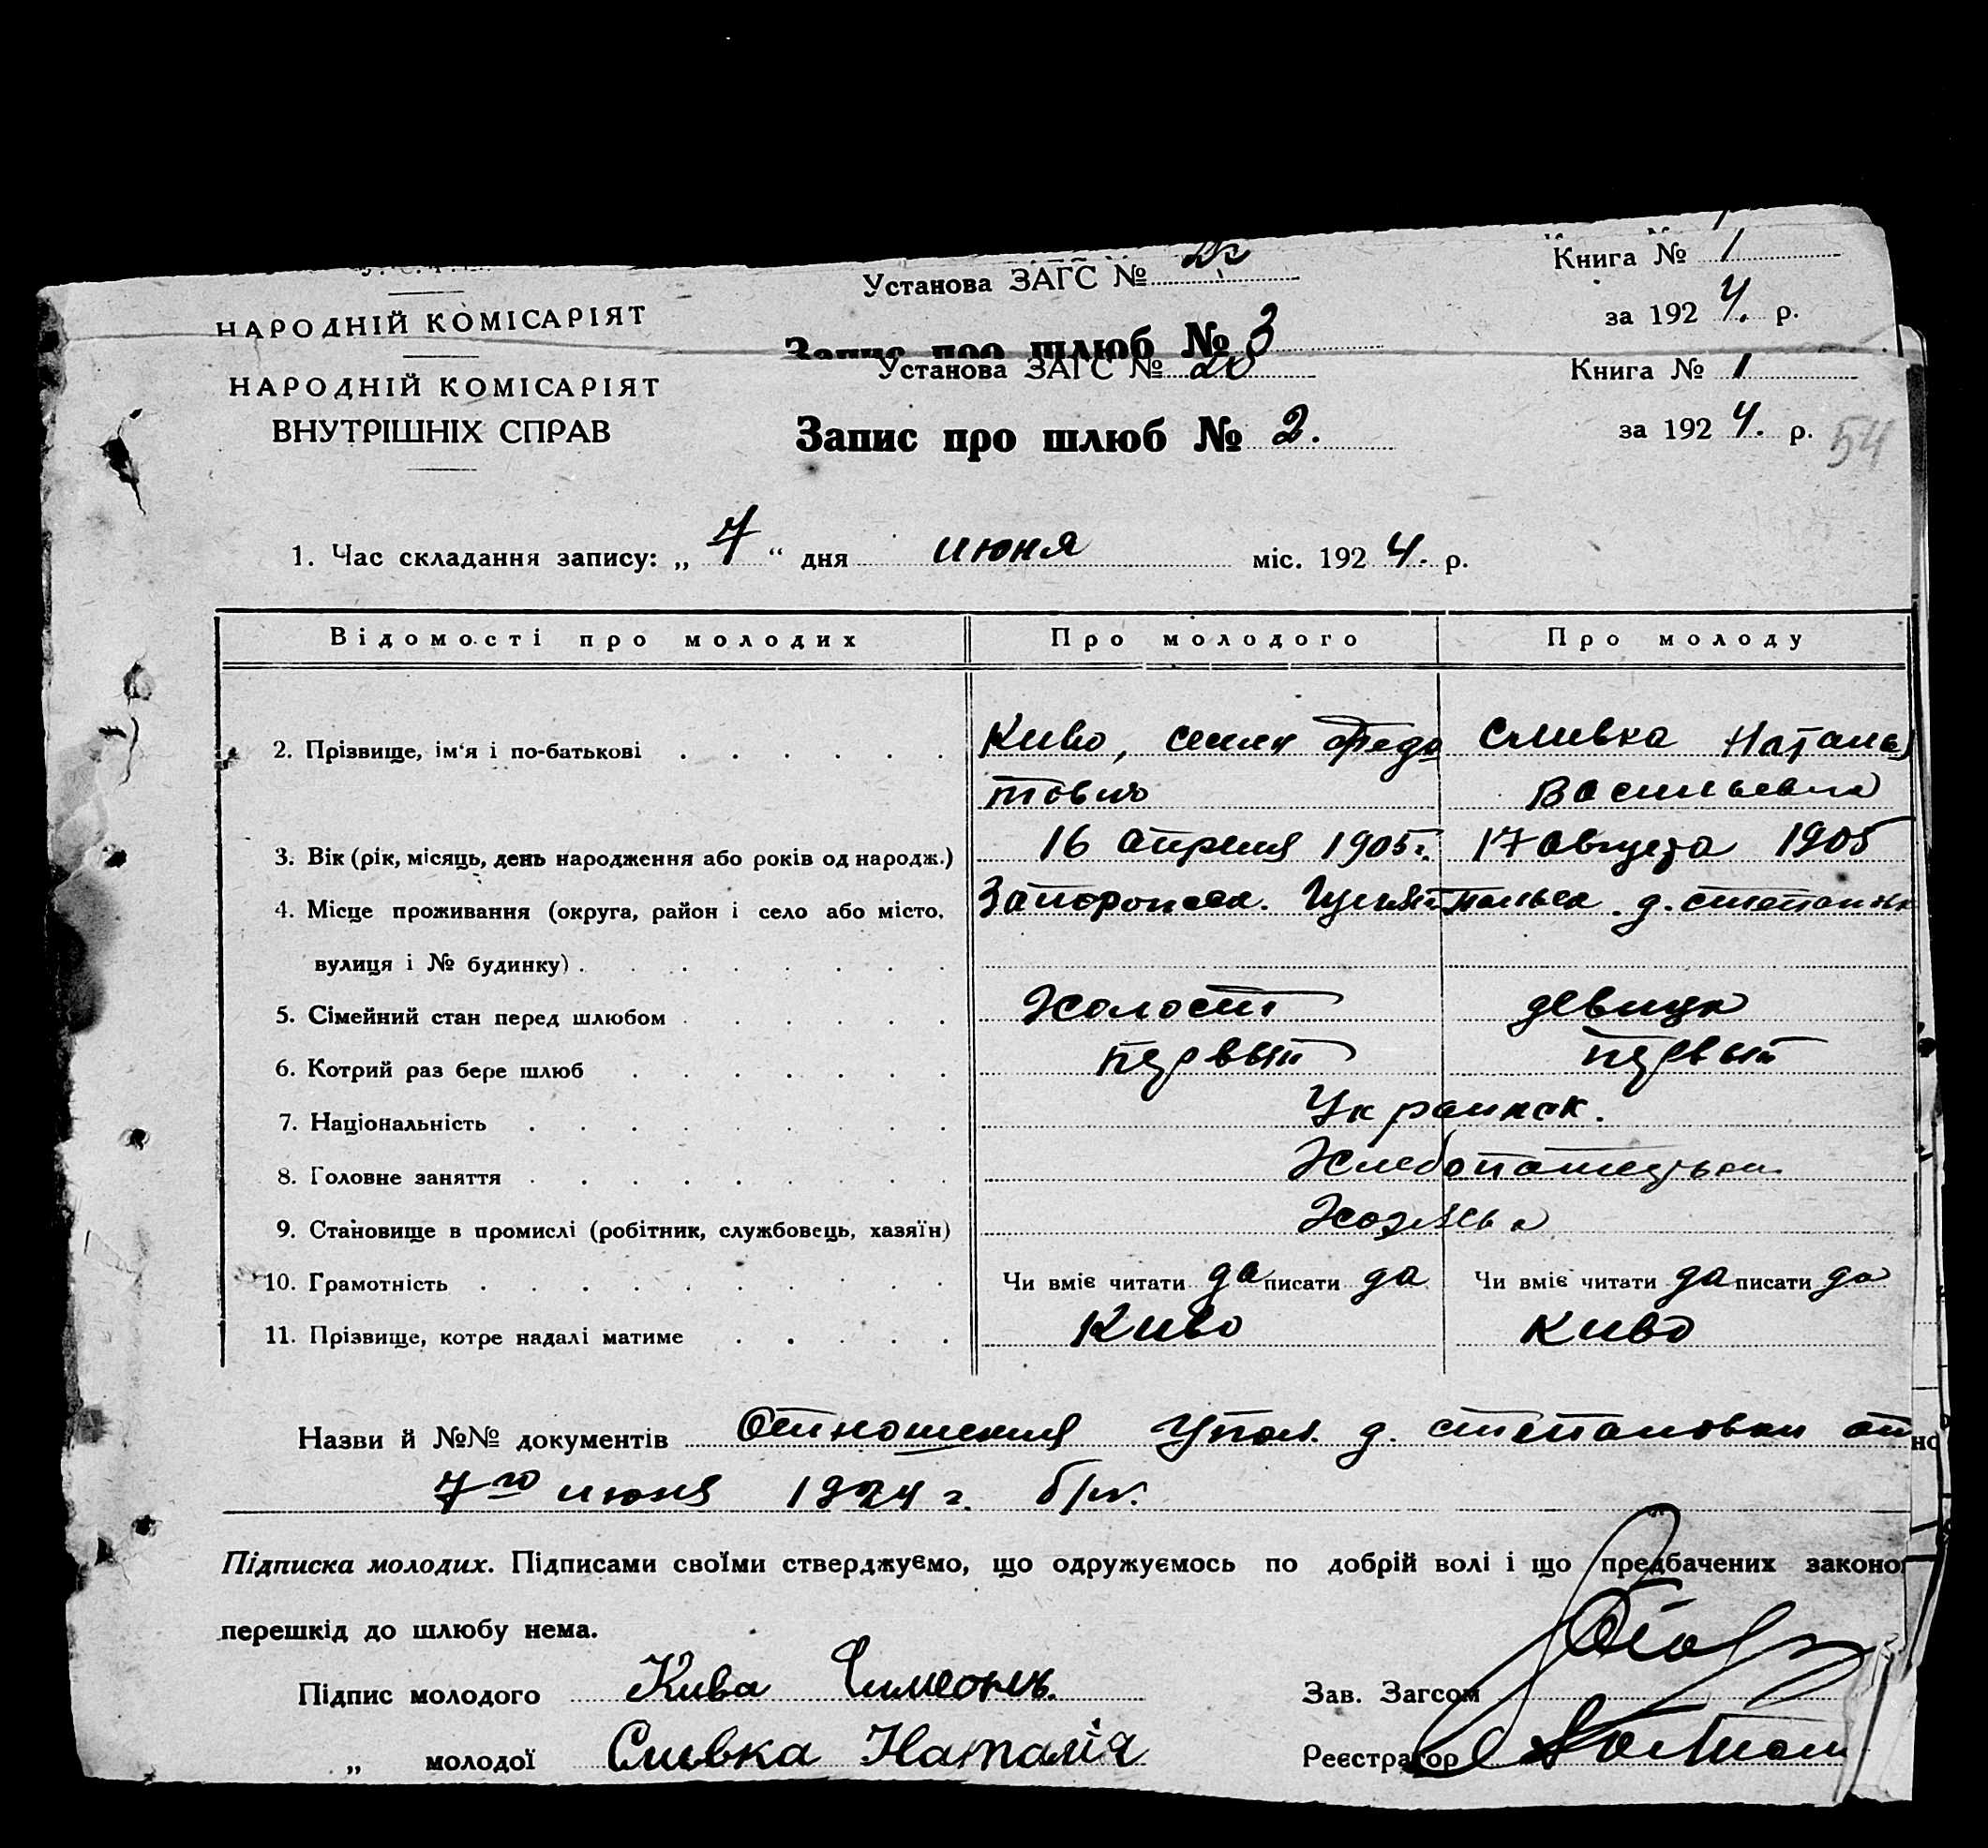 Установа ЗАГС №
Книга № 1
НАРОДНІЙ КОМІСАРІЯТ
за 1924. р.
Запис про шлюб № 3
Установа ЗАГС № 20
Книга № 1
НАРОДНІЙ КОМІСАРІЯТ
ВНУТРІШНІХ СПРАВ
Запис про шлюб № 2.
за 1924. р.
54
1. Час складання запису: „ 7 “ дня июня міс. 1924. р.
Відомості про молодих Про молодого Про молоду
2. Прізвище, ім'я і по-батькові Киво, Семен Федо Сливка Наталья
тович Васильевна
3. Вік (рік, місяць, день народження або років од народж.) 16 Апреля 1905 г. 17 Августа 1905
4. Місце проживання (округа, район і село або місто, д.
вулиця і № будинку)
5. Сімейний стан перед шлюбом Холост девица
6. Котрий раз бере шлюб первый первый
7. Національність
8. Головне заняття
9. Становище в промислі (робітник, службовець, хазяїн)
10. Грамотність Чи вміє читати да писати да Чи вміє читати да писати да
11. Прізвище, котре надалі матиме Киво Киво
Назви й №№ документів Отношения Упол. д. Степановки от
7го июня 1924 г. б/н.
Підписка молодих. Підписами своїми стверджуємо, що одружуємось по добрій волі і що предбачених законо
перешкід до шлюбу нема.
Підпис молодого Кива
Зав. Загсом
„ молодої Сливка Наталія
Реєстратор